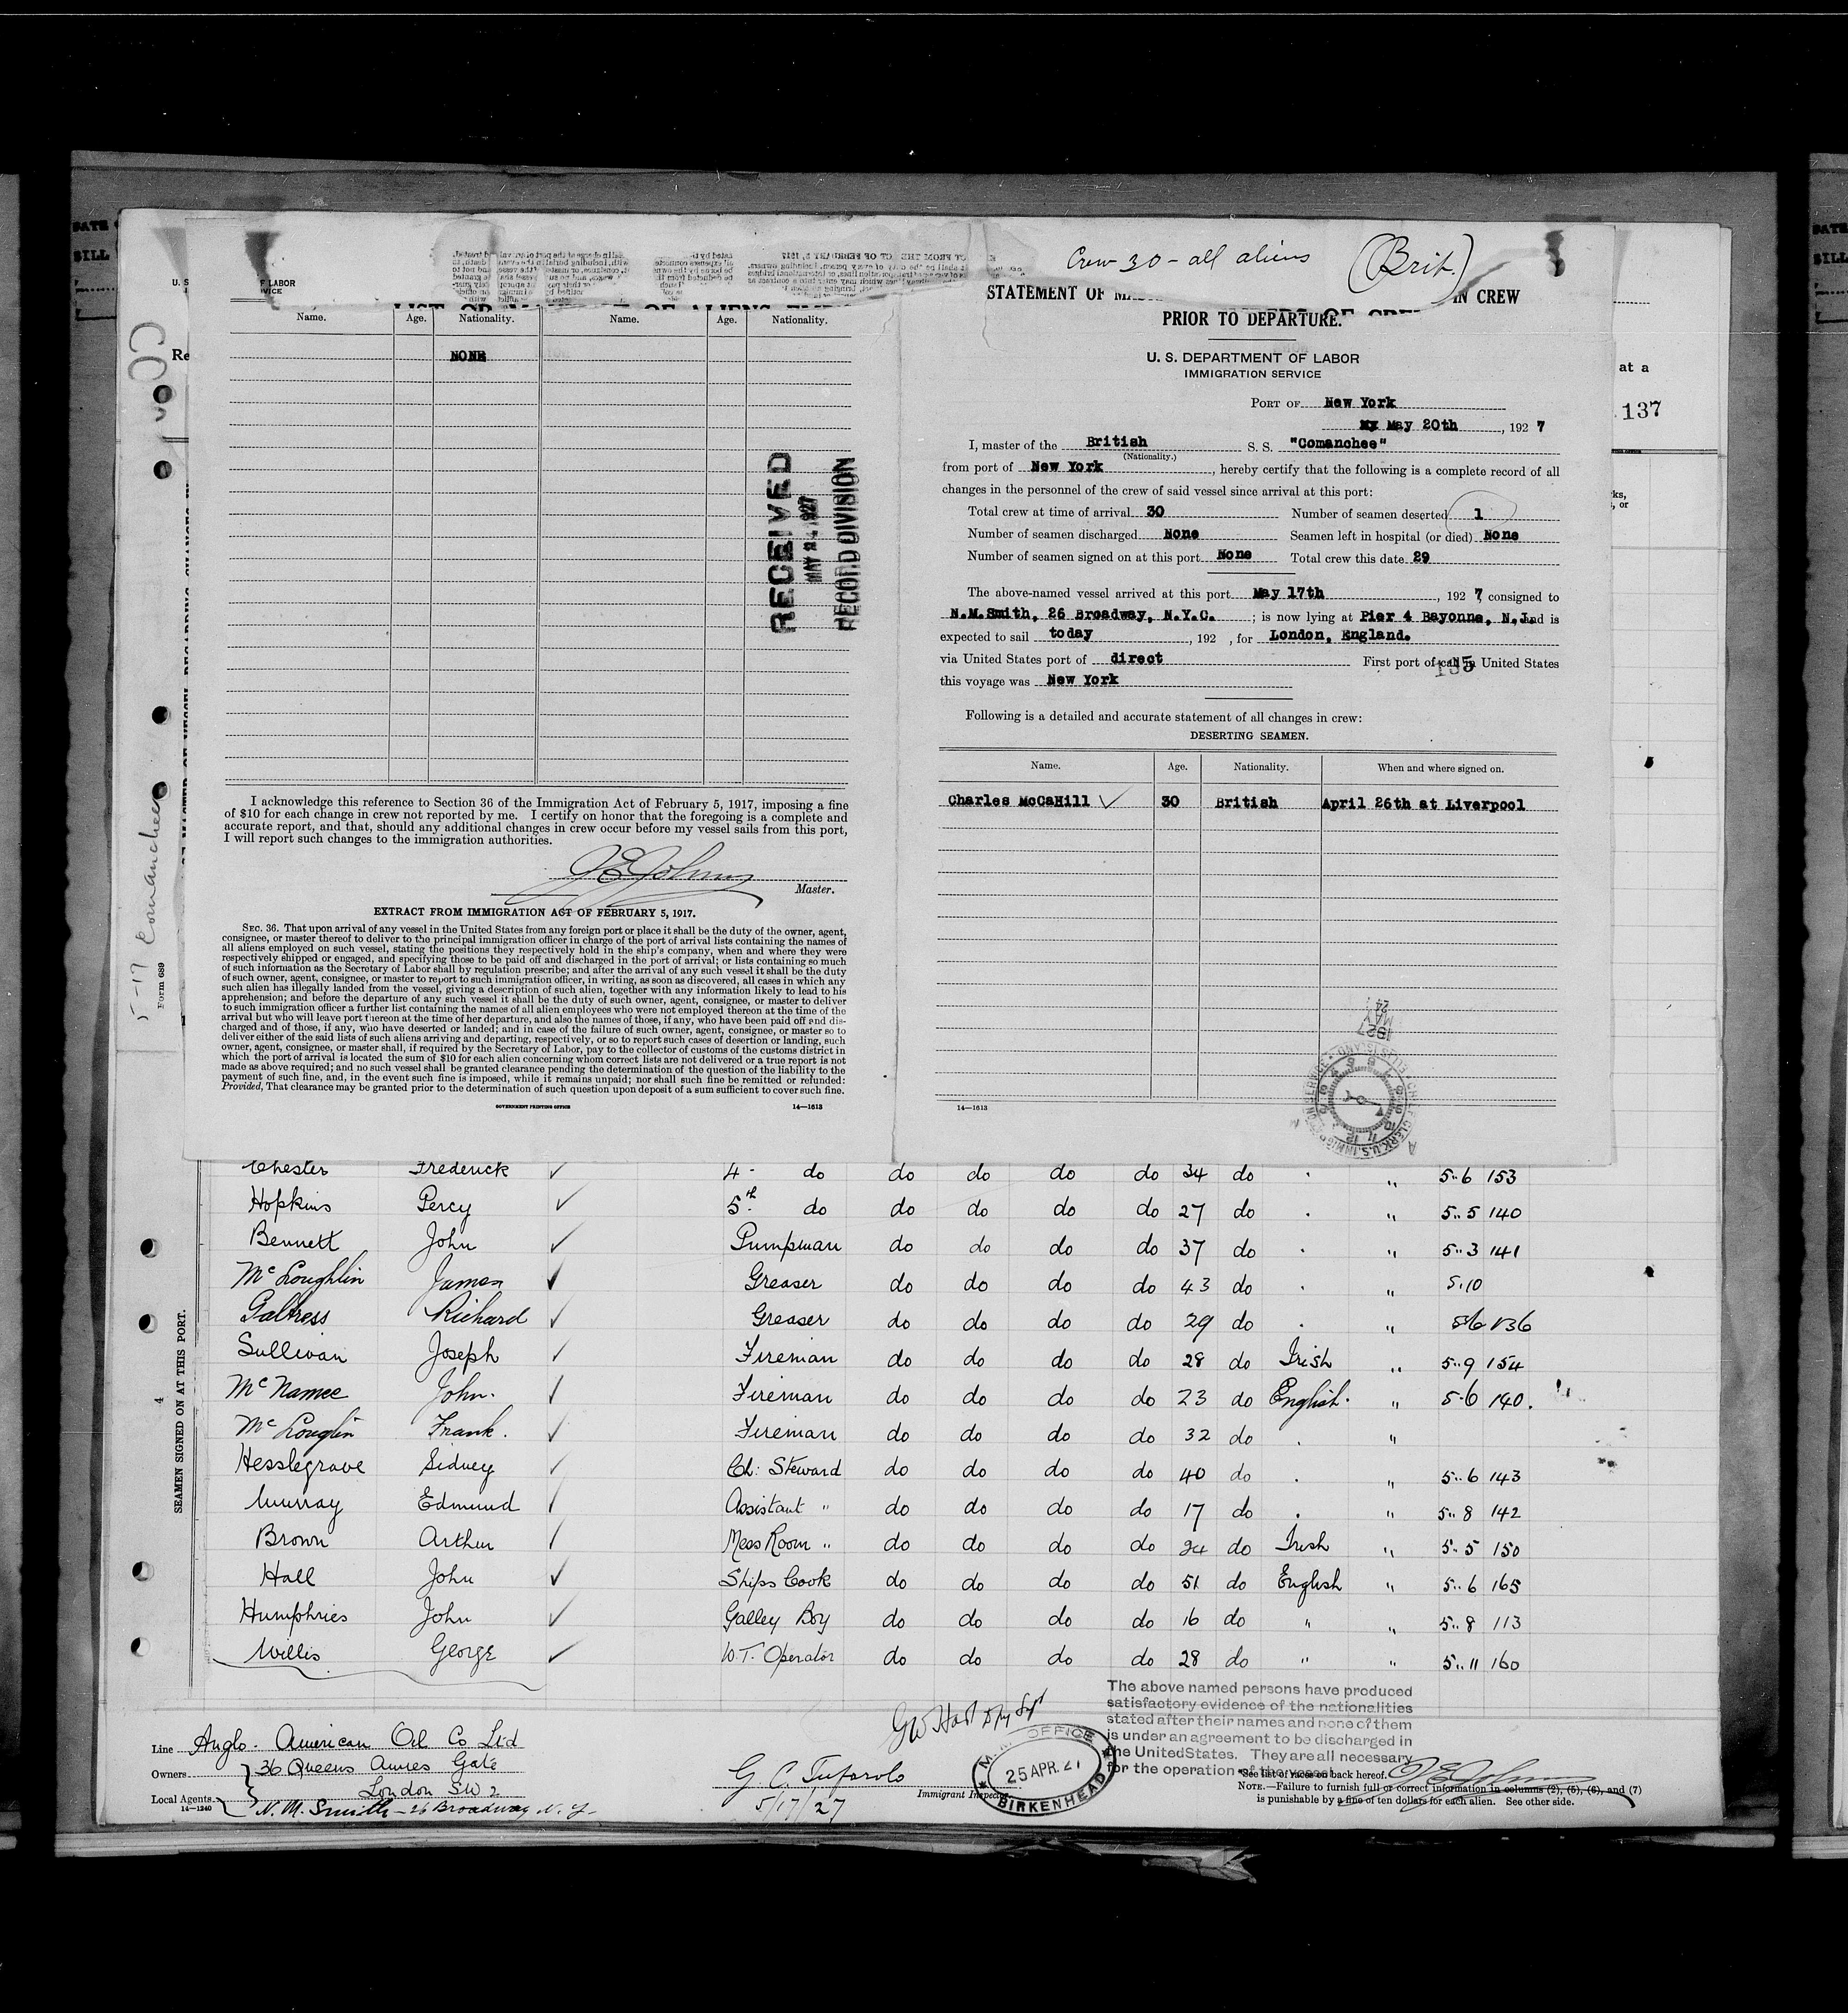 Crew 30 - all aliens (Brit.)
STATEMENT OF IN CREW
PRIOR TO DEPARTURE.
U. S. DEPARTMENT OF LABOR
IMMIGRATION SERVICE
PORT OF New York
May 20th, 1927
I, master of the British S. S. "Comanchee"
(Nationality.)
from port of New York, hereby certify that the following is a complete record of all
changes in the personnel of the crew of said vessel since arrival at this port:
Total crew at time of arrival 30 Number of seamen deserted 1
Number of seamen discharged None Seamen left in hospital (or died) None
Number of seamen signed on at this port None Total crew this date 29
The above-named vessel arrived at this port May 17th, 1927, consigned to
N.M.Smith, 26 Broadway, N.Y.C.; is now lying at Pier 4 Bayonne, N.J. and is
expected to sail today, 192 , for London, England.
via United States port of direct First port of call in United States
135
this voyage was New York
Following is a detailed and accurate statement of all changes in crew:
DESERTING SEAMEN.
Name. Age. Nationality. When and where signed on.
Charles McCaHill ✓ 30 British April 26th at Liverpool
1927
MAY
24
14—1613
Name. Age. Nationality. Name. Age. Nationality.
NONE
RECEIVED
MAY 24 1927
RECORD DIVISION
I acknowledge this reference to Section 36 of the Immigration Act of February 5, 1917, imposing a fine
of $10 for each change in crew not reported by me. I certify on honor that the foregoing is a complete and
accurate report, and that, should any additional changes in crew occur before my vessel sails from this port,
I will report such changes to the immigration authorities.
Master.
EXTRACT FROM IMMIGRATION ACT OF FEBRUARY 5, 1917.
SEC. 36. That upon arrival of any vessel in the United States from any foreign port or place it shall be the duty of the owner, agent,
consignee, or master thereof to deliver to the principal immigration officer in charge of the port of arrival lists containing the names of
all aliens employed on such vessel, stating the positions they respectively hold in the ship's company, when and where they were
respectively shipped or engaged, and specifying those to be paid off and discharged in the port of arrival; or lists containing so much
of such information as the Secretary of Labor shall by regulation prescribe; and after the arrival of any such vessel it shall be the duty
of such owner, agent, consignee, or master to report to such immigration officer, in writing, as soon as discovered, all cases in which any
such alien has illegally landed from the vessel, giving a description of such alien, together with any information likely to lead to his
apprehension; and before the departure of any such vessel it shall be the duty of such owner, agent, consignee, or master to deliver
to such immigration officer a further list containing the names of all alien employees who were not employed thereon at the time of the
arrival but who will leave port thereon at the time of her departure, and also the names of those, if any, who have been paid off and dis-
charged and of those, if any, who have deserted or landed; and in case of the failure of such owner, agent, consignee, or master so to
deliver either of the said lists of such aliens arriving and departing, respectively, or so to report such cases of desertion or landing, such
owner, agent, consignee, or master shall, if required by the Secretary of Labor, pay to the collector of customs of the customs district in
which the port of arrival is located the sum of $10 for each alien concerning whom correct lists are not delivered or a true report is not
made as above required; and no such vessel shall be granted clearance pending the determination of the question of the liability to the
payment of such fine, and, in the event such fine is imposed, while it remains unpaid; nor shall such fine be remitted or refunded:
Provided, That clearance may be granted prior to the determination of such question upon deposit of a sum sufficient to cover such fine.
GOVERNMENT PRINTING OFFICE 14—1613
5-17 Comanchee
Form 689
at a
137
ks,
, or
SEAMEN SIGNED ON AT THIS PORT.
4
Chester Frederick ✓ 4 - do do do do do 34 do . " 5..6 153
Hopkins Percy ✓ 5th do do do do do 27 do . " 5..5 140
Bennett John ✓ Pumpman do do do do 37 do . " 5..3 141
McLoughlin James ✓ Greaser do do do do 43 do . " 5.10
Galtress Richard ✓ Greaser do do do do 29 do . " 5..6 136
Sullivan Joseph ✓ Fireman do do do do 28 do Irish " 5..9 154
McNamee John. ✓ Fireman do do do do 23 do English. " 5.6 140.
McLouglin Frank. ✓ Fireman do do do do 32 do . "
Hesslegrave Sidney ✓ Ch: Steward do do do do 40 do . " 5..6 143
Murray Edmund ✓ Assistant " do do do do 17 do . " 5..8 142
Brown Arthur ✓ Mess Room " do do do do 24 do Irish " 5..5 150
Hall John ✓ Ships Cook do do do do 51 do English " 5..6 165
Humphries John ✓ Galley Boy do do do do 16 do " " 5..8 113
Willis George ✓ W.T. Operator do do do do 28 do " " 5..11 160
The above named persons have produced
satisfactory evidence of the nationalities
stated after their names and none of them
is under an agreement to be discharged in
the United States. They are all necessary
for the operation of the vessel
Line Anglo. American Oil Co Ltd
Owners 36 Queens Annes Gate
London SW 2
Local Agents N. M. Smith - 26 Broadway N. Y.
14—1240
5/17/27
Immigrant Inspector
OFFICE
25 APR. 27
BIRKENHEAD
*See list of races on back hereof.
NOTE.—Failure to furnish full or correct information in columns (2), (5), (6), and (7)
is punishable by a fine of ten dollars for each alien. See other side.